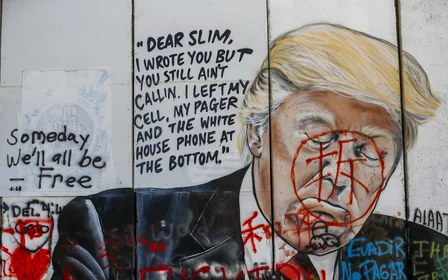 "DEAR SLIM,
I WROTE YOU BUT
YOU STILL AIN'T
CALLIN. I LEFT MY
CELL, MY PAGER
AND THE WHITE
HOUSE PHONE AT
THE BOTTOM,"
Someday
We'll all be
Free
拆
和
EVADIR
No PAGAR